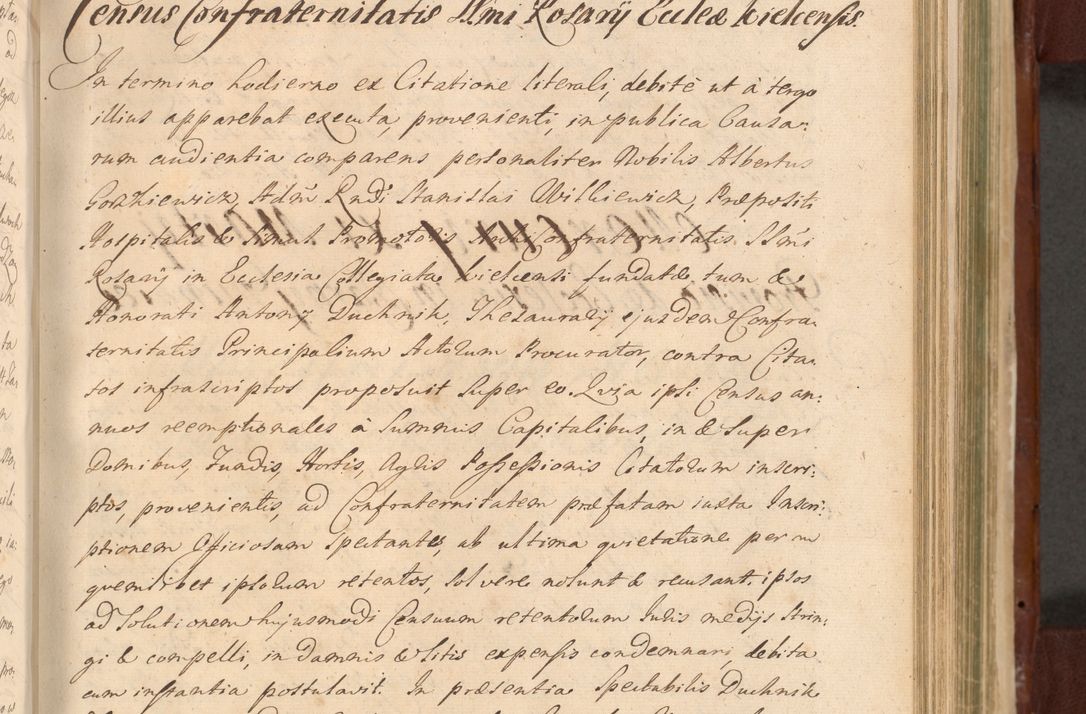 Census Confraternitatis SSmi Rosarij Eccleæ Kielcensis.
In termino hodierno ex Citatione literali, debitè ut à tergo
illius apparebat executa, provenienti, in publica Causa-
rum audientia comparens personaliter Nobilis Albertus
Gorzkiewicz, Adm Rndi Stanislai Wilkiewicz, Præpositi
Hospitalis & simul Promotoris Archiconfraternitatis SSmi
Rosarij in Ecclesia Collegiata Kielcensi fundatæ, tum &
Honorati Antonij Duchnik, Thesaurarij ejusdem Confra-
ternitatis Principalium Actorum Procurator, contra Cita-
tos infrascriptos proposuit super eo. Quia ipsi Census an-
nuos reemptionales à Summis Capitalibus, in & super
Domibus, Fundis, Hortis, Agris Possessionis Citatorum inscri-
ptos, provenientes, ad Confraternitatem præfatam iuxta Inscri-
ptionem Officiosam spectantes, ab ultima quietatione per u-
quemlibet ipsorum retentos, solvere nolunt & recusant. ipsos
ad Solutionem hujusmodi Censuum retentorum Juris medijs strin-
gi & compelli, in damnis & litis expensis condemnari, debita
cum instantia postulavit. In præsentia Spectabilis Duchnik